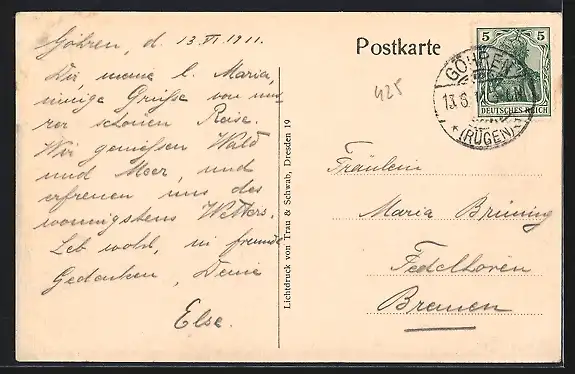 Göhren, d. 13. VI. 1911.
Dir, meine l. Maria,
innige Grüsse von uns
rer schönen Reise.
Wir geniessen Wald
und Meer, und
erfreuen uns des
wonnigsten Wetters.
Leb wohl, in freunde
Gedenken, Deine
Else.
Postkarte
425
5 5
DEUTSCHES REICH
GÖHREN
13.6.11
* (RÜGEN)
Lichtdruck von Trau & Schwab, Dresden 19
Fräulein
Maria Brüning
Fedelhören
Bremen